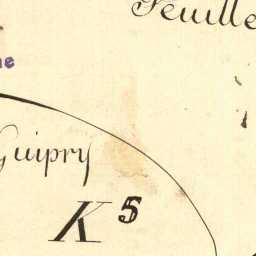 Feuille
Guipry
K5